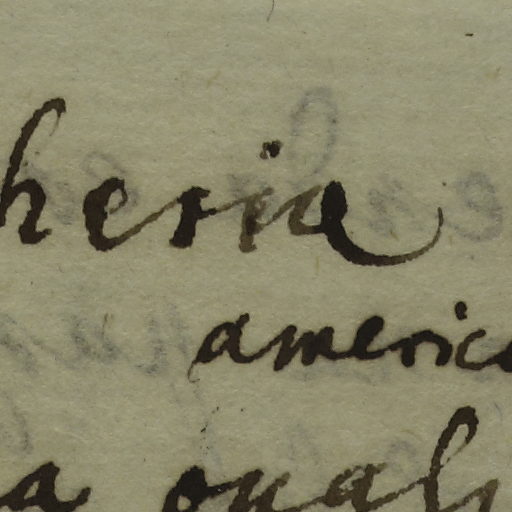 heria
americ
a oval